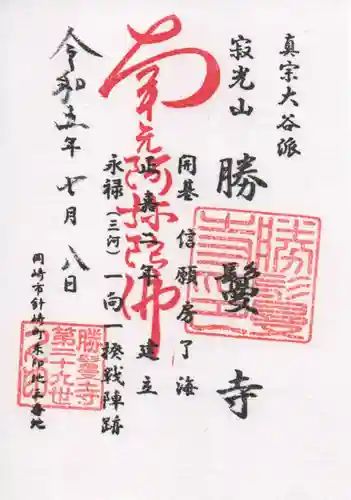 真宗大谷派
寂光山
勝鬘寺
開基 信願房了海
正嘉二年 建立
南無阿弥陀佛
永禄(三河)一向一揆戦陣跡
令和五年七月八日
岡崎市針崎町朱印地三番地
勝鬘寺
第二十九世